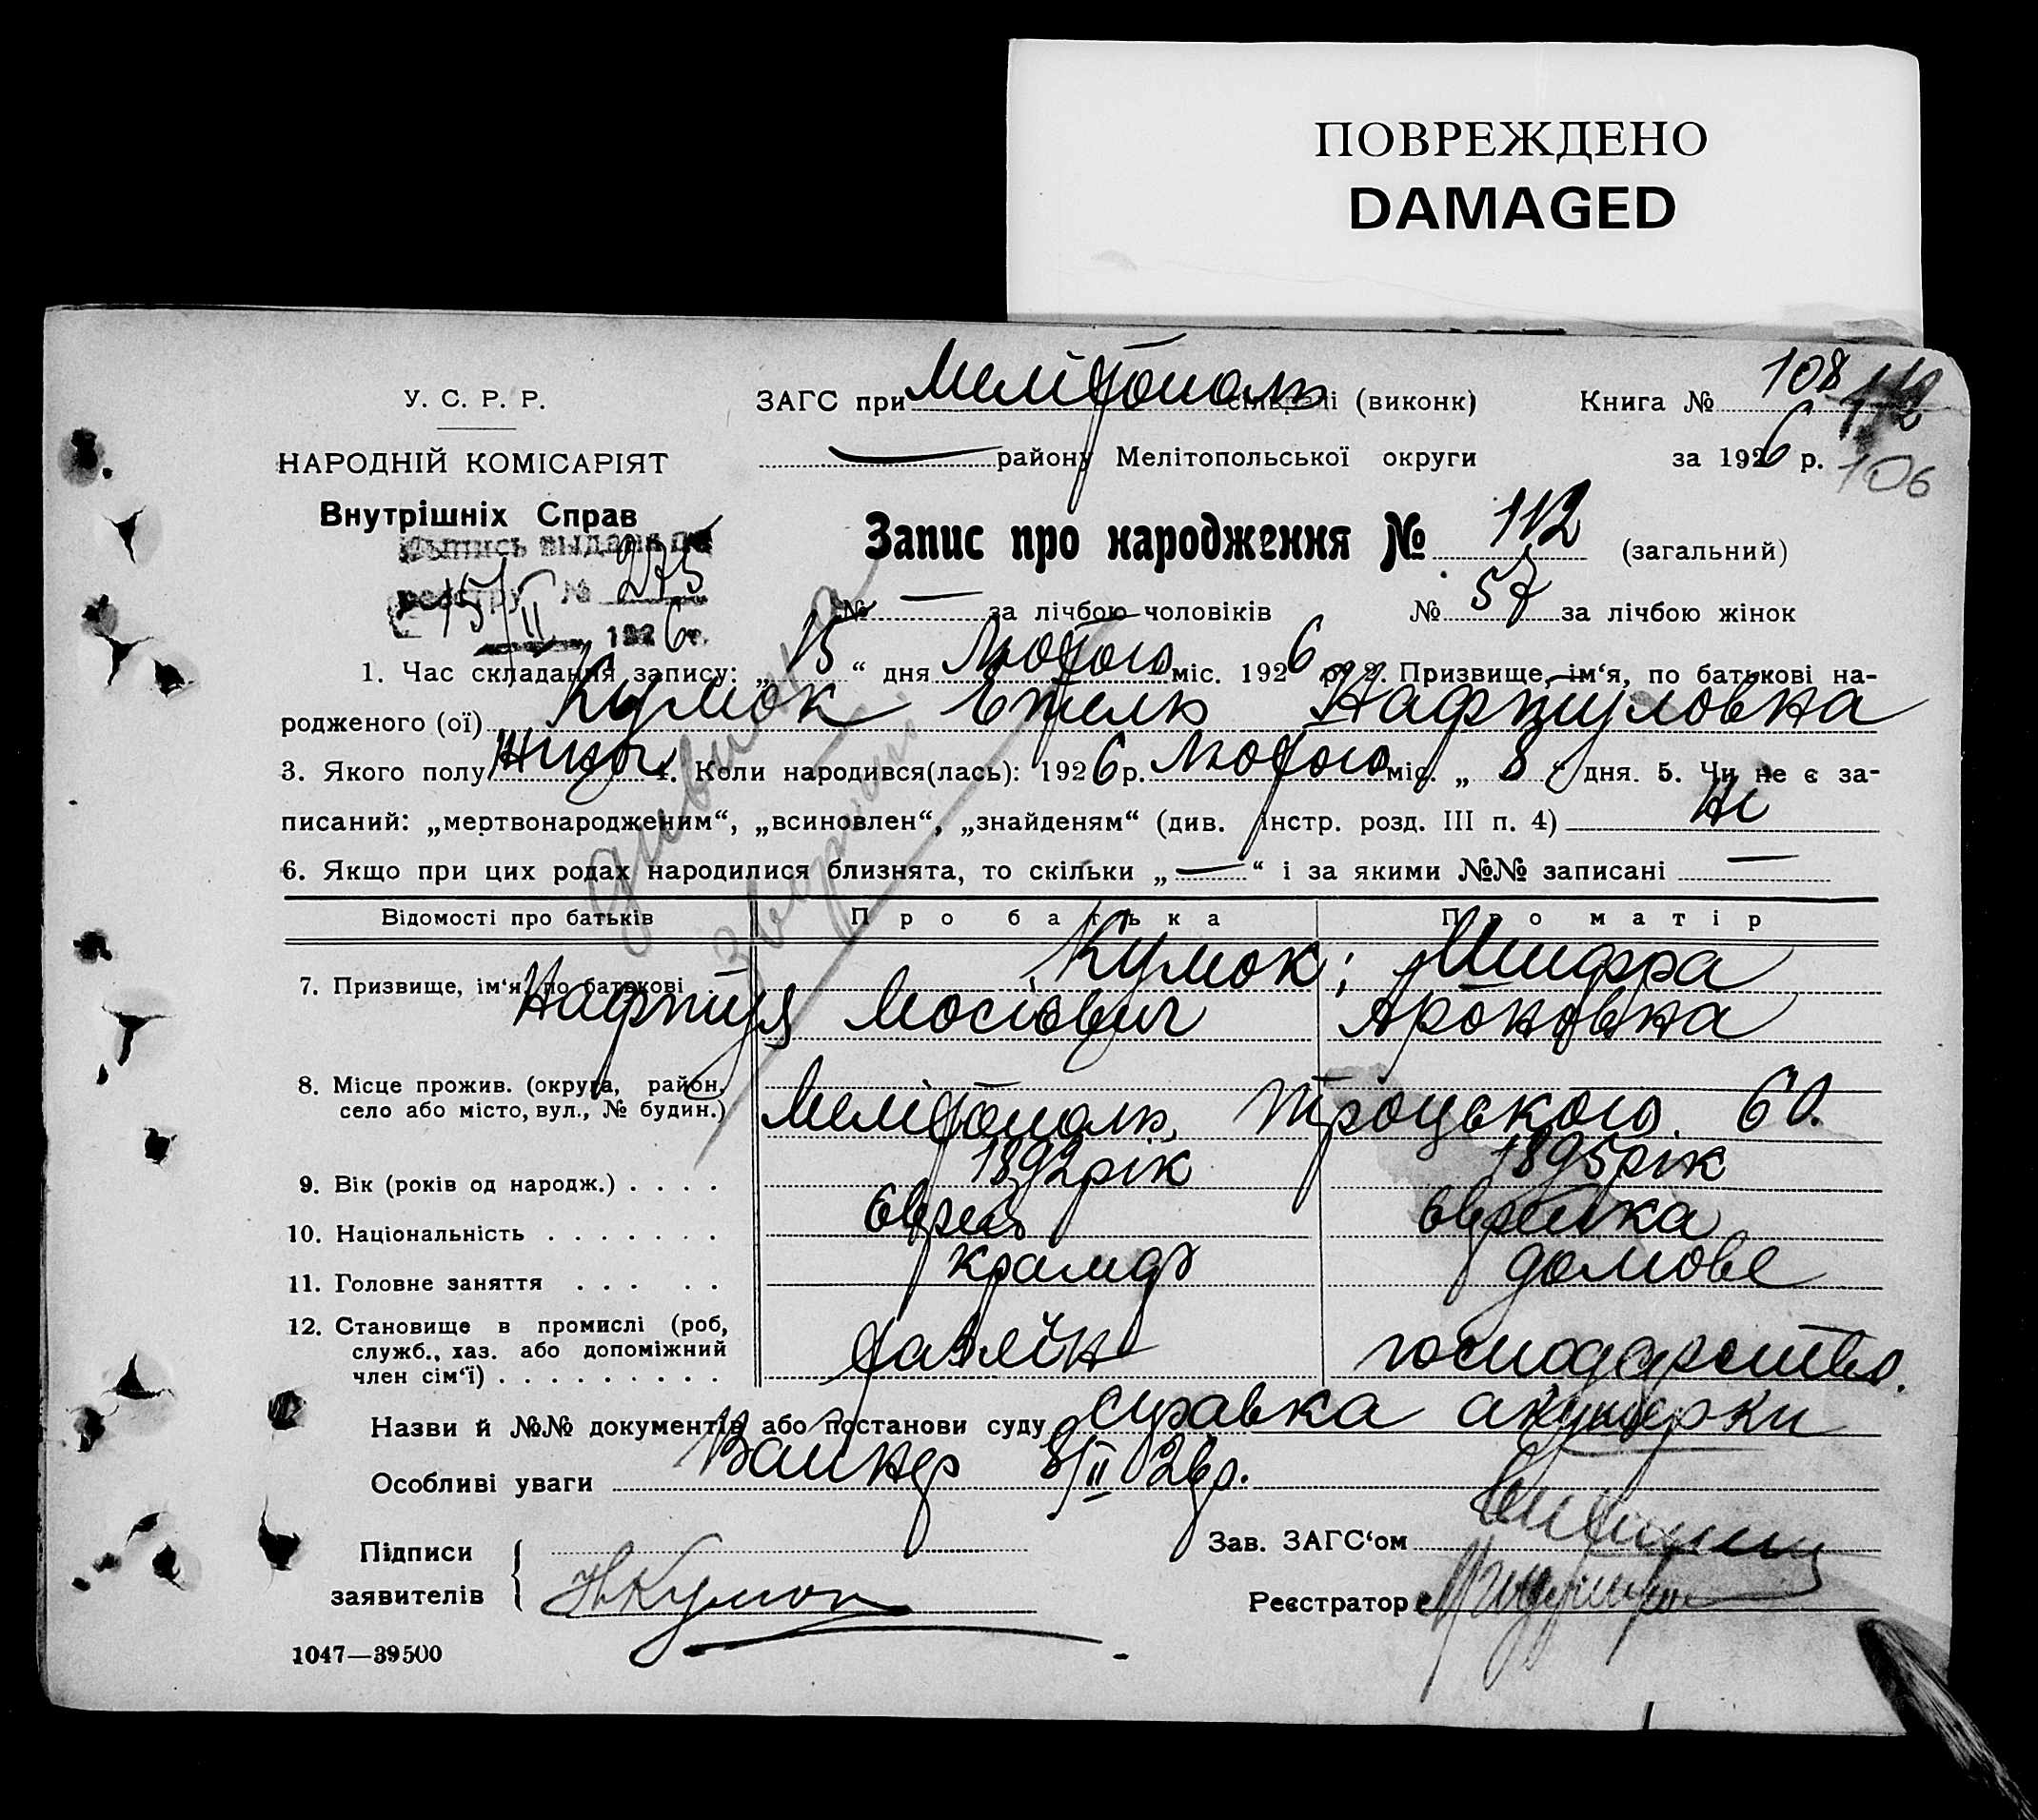 ПОВРЕЖДЕНО
DAMAGED
У. С. Р. Р.
НАРОДНІЙ КОМІСАРІЯТ
Внутрішніх Справ
выдана
реестру № 275
15/II 1926 г.
ЗАГС при Мелітополь сільраді (виконк)
Книга № 108 112
району Мелітопольської округи
за 1926 р.
106
Запис про народження № 112 (загальний)
№ — за лічбою чоловіків № 57 за лічбою жінок
1. Час складання запису: „15“ дня Лютого міс. 1926 р. 2. Призвище, ім‘я, по батькові на-
родженого (ої) Кумок Етель Нафтуловна
3. Якого полу жіноч. 4. Коли народився(лась): 1926 р. Лютого міс. „8“ дня. 5. Чи не є за-
писаний: „мертвонародженим“, „всиновлен“, „знайденям“ (див. Інстр. розд. III п. 4) Ні
6. Якщо при цих родах народилися близнята, то скільки „—“ і за якими №№ записані —
дивись на звороті
Відомості про батьків Про батька Про матір
7. Призвище, ім‘я, по батькові Кумок; Шифра
Нафтул Мосієвич Ароновна
8. Місце прожив. (округа, район,
село або місто, вул., № будин.) Мелітополь, Троцького 60.
9. Вік (років од народж.) . . . . 1892 рік 1895 рік
10. Національність . . . . . . . Єврей Єврейка
11. Головне заняття . . . . . крамар домове
12. Становище в промислі (роб,
служб., хаз. або допоміжний
член сім‘ї) . . . . . . . . . хазяїн господарство.
Назви й №№ документів або постанови суду справка акушерки
Особливі уваги Вайнер 8/II 26 р.
Підписи
заявителів
НКумок
Зав. ЗАГС‘ом
Реєстратор
1047—39500